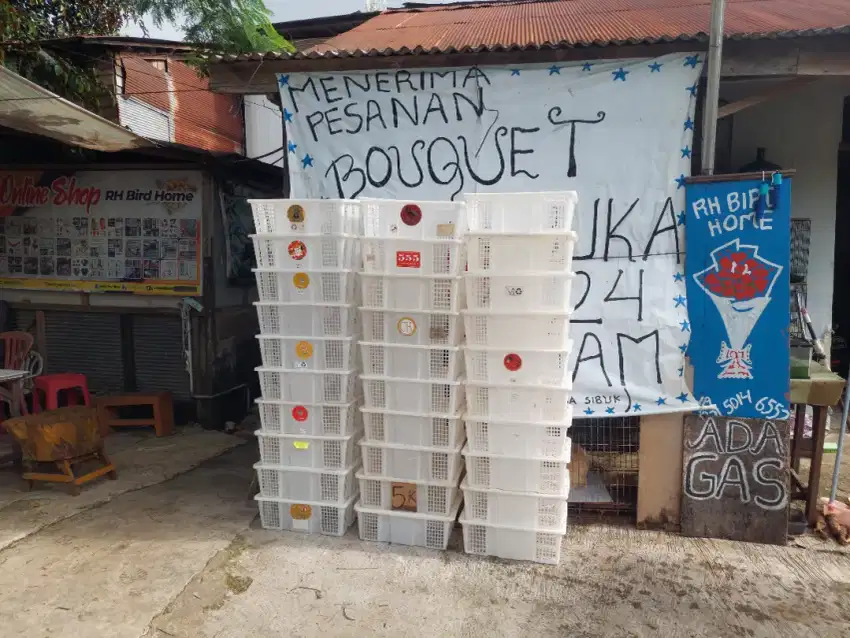 MENERIMA
PESANAN
BOUQUET
UKA
24
JAM
A SIBUK
Online Shop RH Bird Home
RH BIRD
HOME
5014 6557
ADA
GAS
555
5K